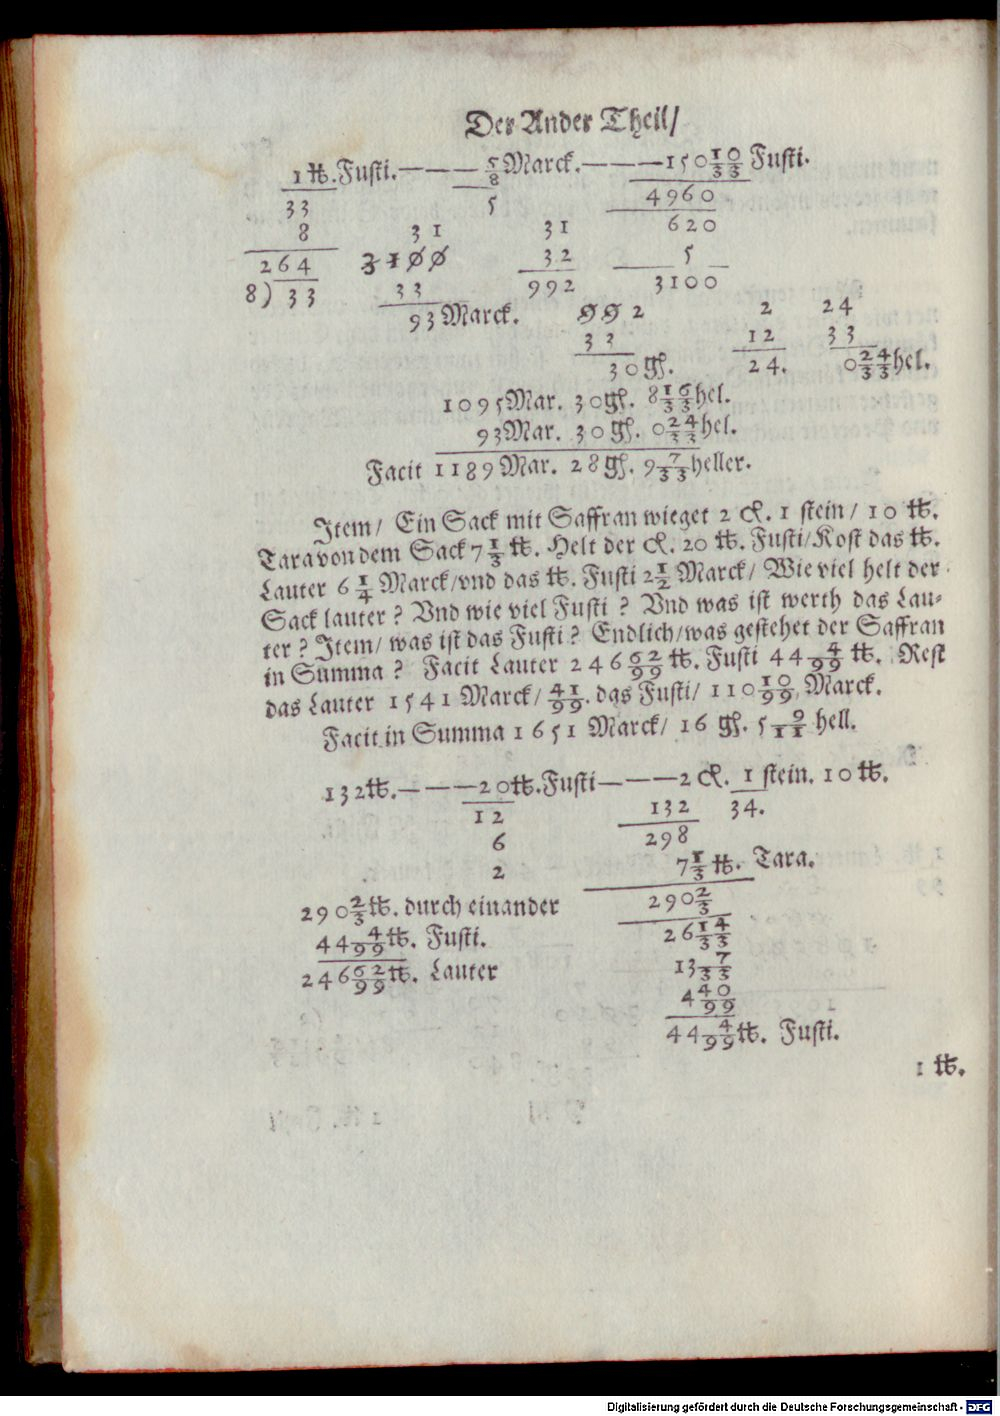 Der Ander Theil/
1 ℔. Fusti. — — — 5/8 Marck. — — — 150 10/33 Fusti.
33 5 4960
8 31 31 620
264 3100 32 5
8) 33 33 992 3100
93 Marck. 992 2 24
33 12 33
30 gſ. 24. 0 24/33 hel.
1095 Mar. 30 gſ. 8 16/33 hel.
93 Mar. 30 gſ. 0 24/33 hel.
Facit 1189 Mar. 28 gſ. 9 7/33 heller.
Item/ Ein Sack mit Saffran wieget 2 cł. 1 stein/ 10 ℔.
Tara von dem Sack 7 1/3 ℔. Helt der cł. 20 ℔. Fusti/ Kost das ℔.
Lauter 6 1/4 Marck/ vnd das ℔. Fusti 2 1/2 Marck/ Wie viel helt der
Sack lauter? Vnd wie viel Fusti? Vnd was ist werth das Lau-
ter? Item/ was ist das Fusti? Endlich/ was gestehet der Saffran
in Summa? Facit Lauter 246 62/99 ℔. Fusti 44 4/99 ℔. Rest
das Lauter 1541 Marck/ 41/99. das Fusti/ 110 10/99, Marck.
Facit in Summa 1651 Marck/ 16 gſ. 5 9/11 hell.
132 ℔. — — — 20 ℔. Fusti — — — 2 cł. 1 stein. 10 ℔.
12 132 34.
6 298
2 7 1/3 ℔. Tara.
290 2/3 ℔. durch einander 290 2/3
44 4/99 ℔. Fusti. 26 14/33
246 62/99 ℔. Lauter 13 7/33
4 40/99
44 4/99 ℔. Fusti.
1 ℔.
Digitalisierung gefördert durch die Deutsche Forschungsgemeinschaft - DFG